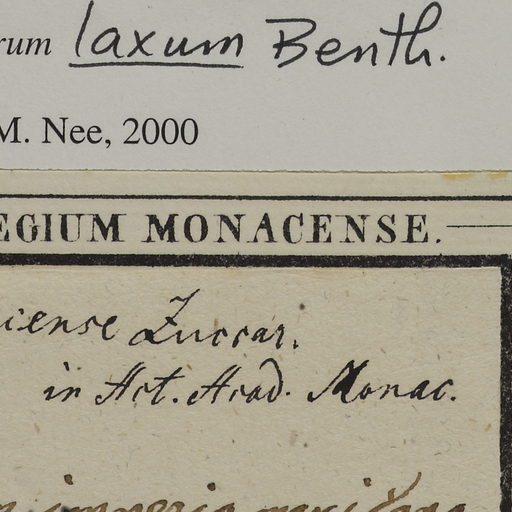 rum laxum Benth.
M. Nee, 2000
EGIUM MONACENSE.
iense Zuccar.
in Act. Acad. Monac.
imperio mexicano